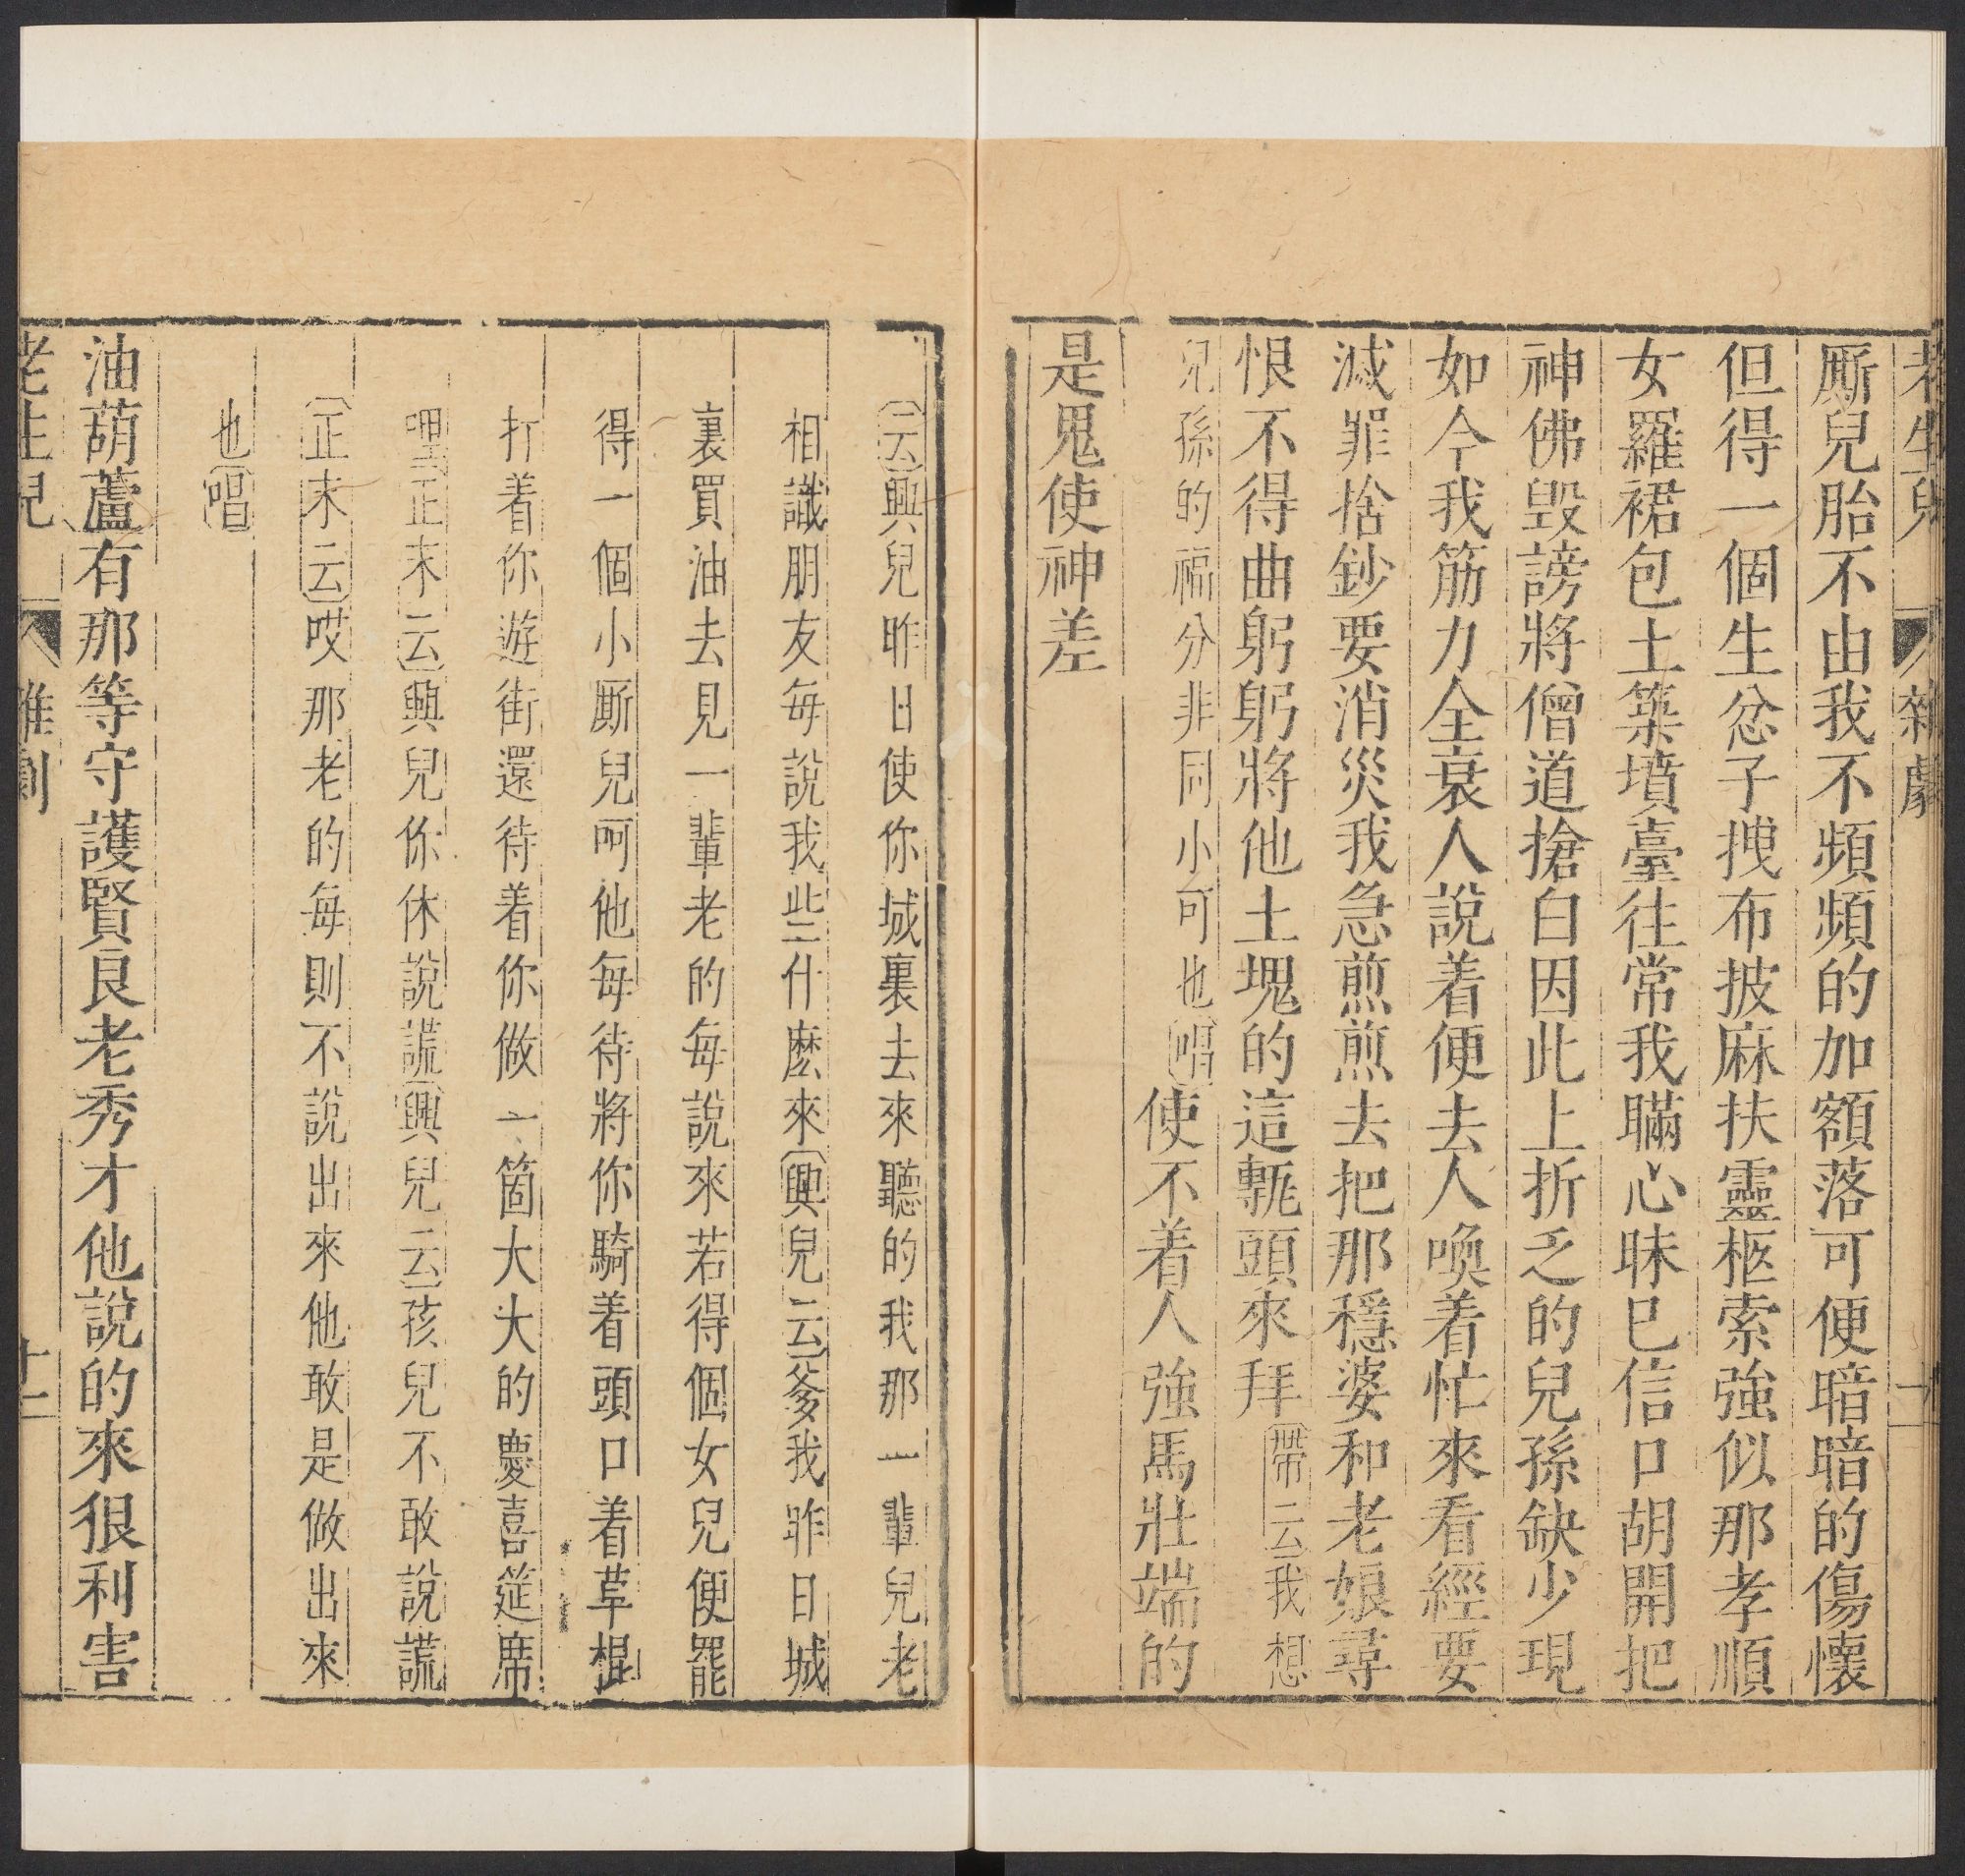 老生兒 雜劇
厮兒胎不由我不頻頻的加額落可便暗暗的傷懷
但得一個生忿子拽布披麻扶靈柩索強似那孝順
女羅裙包土築墳臺往常我瞞心昧巳信口胡開把
神佛毁謗將僧道搶白因此上折乏的兒孫缺少現
如今我筋力全衰人說着便去人喚着忙來看經要
滅罪捨鈔要消災我急煎煎去把那穩婆和老娘尋
恨不得曲躬躬將他土塊的這甎頭來拜帶云我想
兒孫的福分非同小可也唱使不着人強馬壯端的
是鬼使神差
云興兒昨日使你城裏去來聽的我那一輩兒老
相識朋友每說我些什麽來興兒云爹我昨日城
裏買油去見一輩老的每說來若得個女兒便罷
得一個小厮兒呵他每待將你騎着頭口着草棍
打着你遊街還待着你做一箇大大的慶喜筵席
哩正末云興兒你休說謊興兒云孩兒不敢說謊
正末云哎那老的每則不說出來他敢是做出來
也唱
油葫蘆有那等守護賢良老秀才他說的來狠利害
老生兒 雜劇 十二